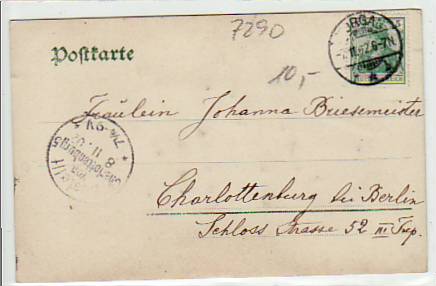 7290
Postkarte
10,-
Fräulein Johanna Briesemeister
Charlottenburg bei Berlin
Schloss Strasse 52 III Trp.
8 11. 02